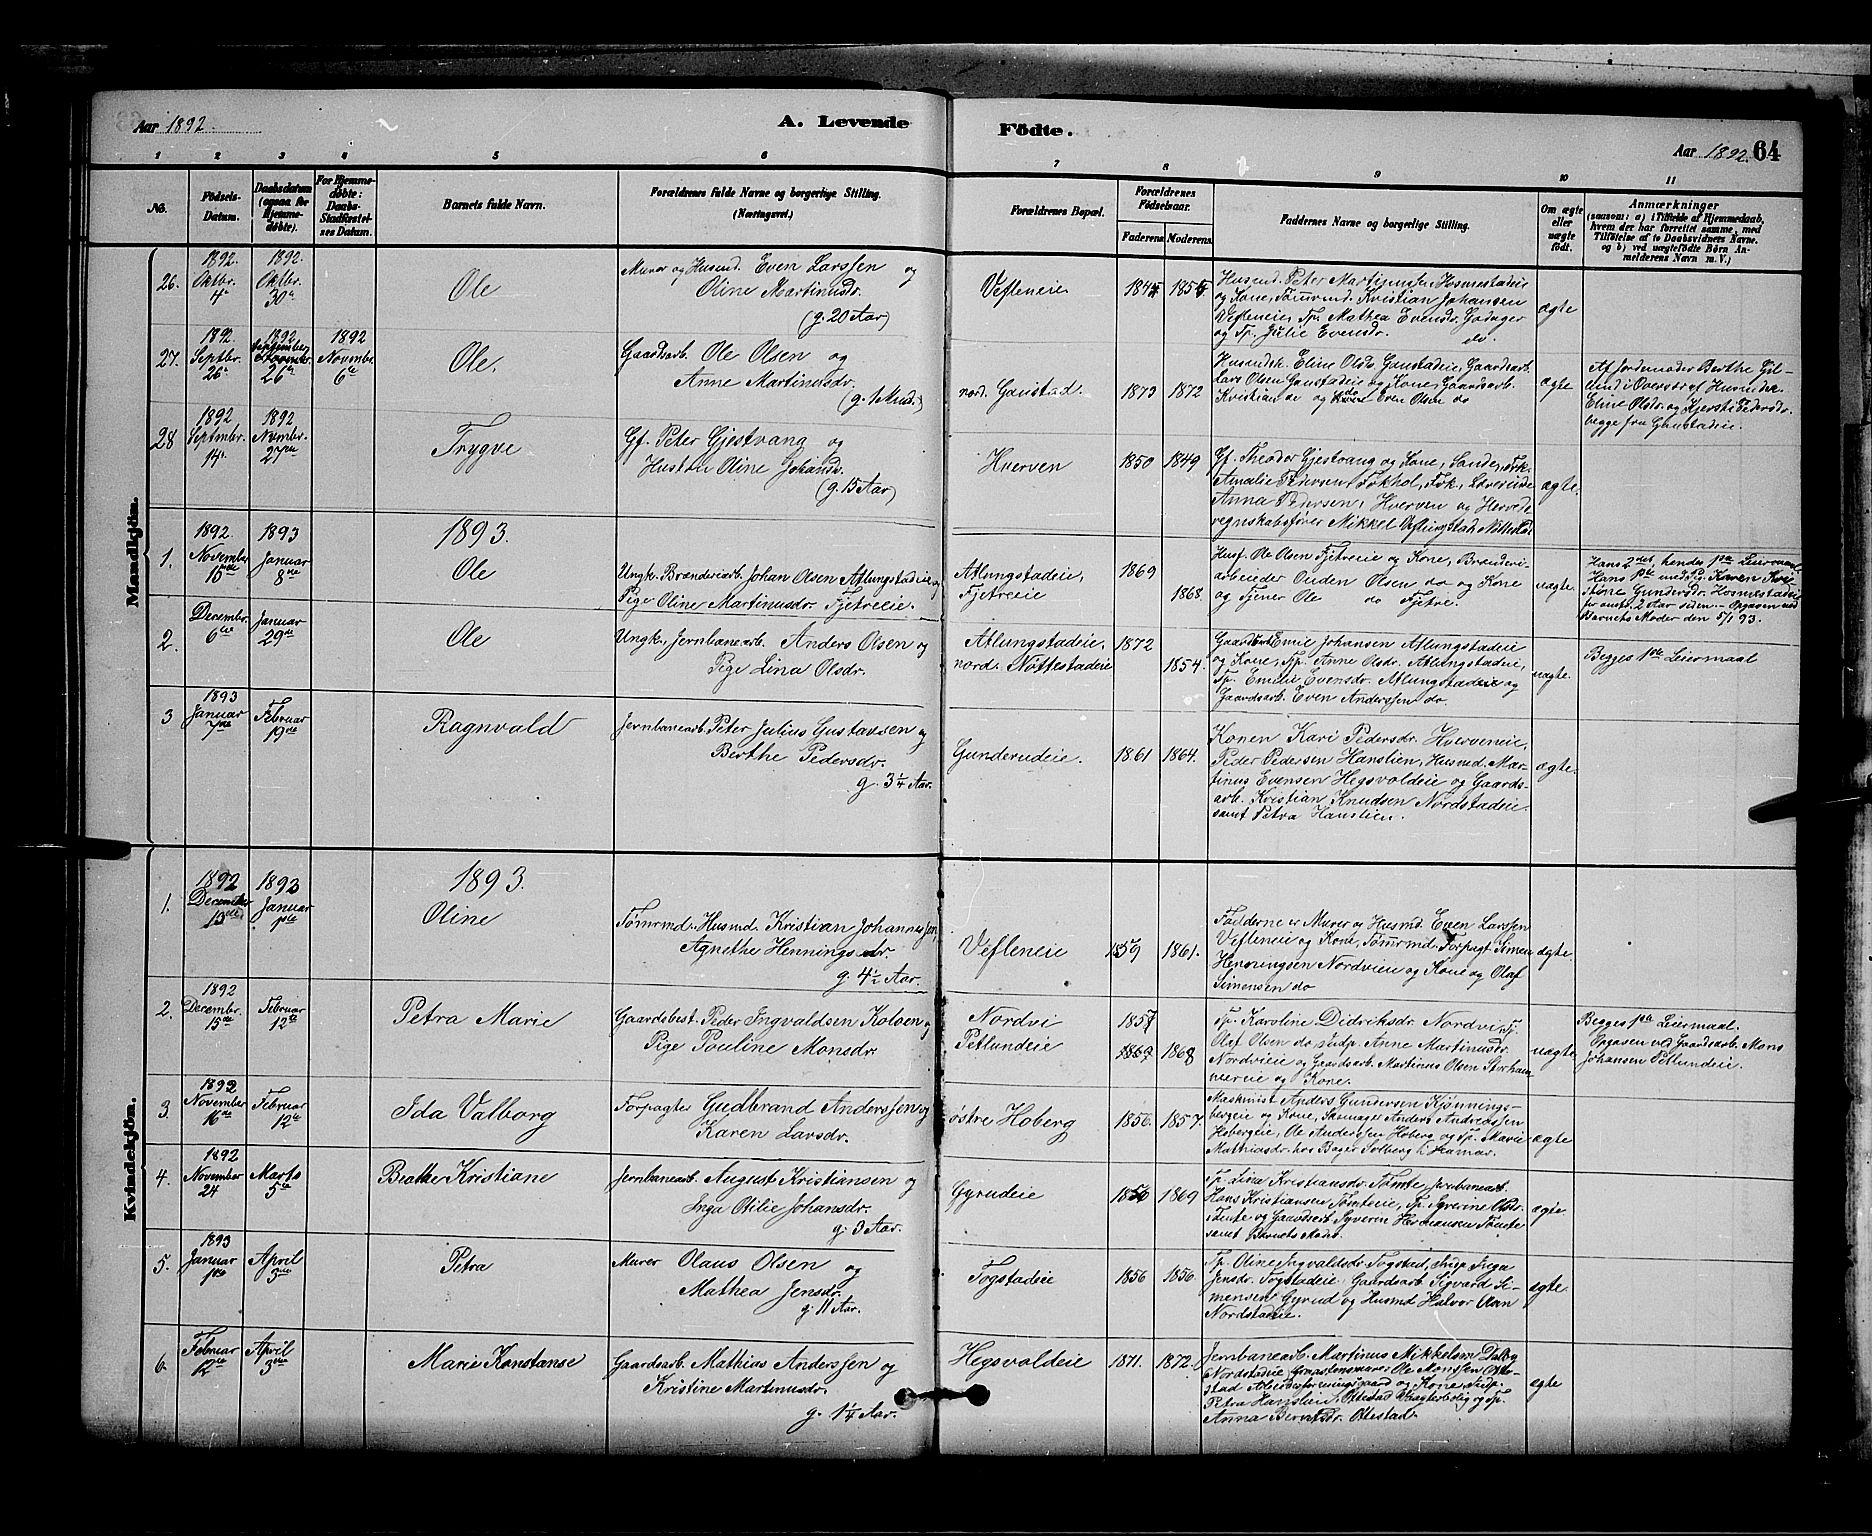 Aar 1892.
A. Levende
Födte.
Aar 1892
64
1 2 3 4 5 6 7 8 9 10 11
No.
Födsels-
Datum.
Daabsdatum
(ogsaa for
Hjemme-
døbte).
For Hjemme-
døbte:
Daabs-
Stadfæstel-
ses Datum.
Barnets fulde Navn.
Forældrenes fulde Navne og borgerlige Stilling.
(Næringsvei.)
Forældrenes Bopæl.
Forældrenes
Födselsaar.
Faderens Moderens
Faddernes Navne og borgerlige Stilling.
Om ægte
eller
uægte
födt.
Anmærkninger
(saasom: a) i Tilfælde af Hjemmedaab,
hvem der har forrettet samme, med
Tilföielse af to Daabsvidners Navne.
og b) ved uægtefödte Börn An-
melderens Navn m. V.)
Mandkjön.
26.
1892.
Oktbr.
4de
1892.
Oktbr.
30te
Ole
Murer og Husmd. Even Larssen og
Oline Martinusdr.
(g. 20 Aar)
Vefleneie
Husmd. Peter Martinussen Hosmestadeie
og Kone, Tømrmd. Kristian Johansen
Vefleneie, Tp. Mathea Evensdr.
og Tp. Julie Evensdr. do.
ægte
27.
1892
Septbr.
26
1892
September
26de
1892
Novembr
6te
Ole.
Gaardsarb. Ole Olsen og
Anne Martinusdr.
nord. Gaustad.
1873 1872
Eline Olsdr. Gaustadeie Gaardsarb.
Lars Olsen Gaustadeie og Kone, Gaardsarb.
Kristian do og Even Olsen do
ægte
Af Jordemoder Berthe
Eline Olsdr. og Kjersti Pedersdr.
begge fra Gaustadeie.
28
1892
Septmbr.
14
1892
Novmbr.
27de
Trygve
Gf. Peter Gjestvang og
Hustru Oline Johansdr.
(g. 15 Aar)
Hverven
1850 1849
Gf. Theodor Gjestvang og Kone, Sande, Frk.
Amalie Pedersen, Frk.
Anna Pedersen, Hverven og Herreds-
regnskabsfører Mikkel
ægte.
1893.
1.
1892.
November
1893
Januar
8de
Ole
Ungk. Brænderiarb. Johan Olsen Atlungstadeie og
Pige Oline Martinusdr. Fjetreeie.
Atlungstadeie,
Fjetreeie
1869
1868.
Husf. Ole Olsen Fjetreeie og Kone, Brænderi-
arbeider Olsen do og Kone
og Tjener Ole do Fjetre.
uægte.
Hans 2det, hendes 1ste Leiermaal.
Hans 1ste med Pg. Karen Kris-
tine Gundersdr. Hosmestadeie
for omtr. 2 Aar siden. – Opgaven ved
Barnets Moder den 5/1 93.
2.
Decembr.
6te
Januar
29de
Ole
Ungk. Jernbanearb. Anders Olsen og
Pige Lina Olsdr.
Atlungstadeie,
nord. Nøttestadeie
1872
1854.
Gaardsarb. Emil Johansen Atlungstadeie
og Kone, Tp. Anne Olsdr. Atlungstadeie,
Tp. Emilie Evensdr. Atlungstadeie og
Gaardsarb. Even Anderssen do.
uægte.
Begges 1ste Leiermaal
3
1893
Januar
7de
Februar
19de
Ragnvald
Jernbanearb. Peter Julius Gustavsen og
Berthe Pedersdr.
g. 3 1/4 Aar.
Gunderudeie.
1861 1864.
Konen Kari Pedersdr. Hverveneie,
Peder Pedersen Hanslien, Husmd. Mar-
tinus Evensen Hegsvoldeie og Gaards-
arb. Kristian Knudsen Nordstadeie
samt Petra Hanslien.
ægte.
Kvindekjön.
1893.
1.
1892
December
13de
1893
Januar
1ste
Oline
Tømrmd. Husmd. Kristian Johannessen,
Agnethe Henningsdr.
g. 4 1/2 Aar.
Vefleneie
1859 1861.
Fadderne er Murer og Husmd. Even Larssen
Vefleneie og Kone, Tømrmd. Forpagt. Simen
Henningsen Nordvieie og Kone og Olaf
Simensen do
ægte.
2.
1892
Decembr.
15de
Februar
12te
Petra Marie
Gaardsbest. Peder Ingvaldsen Kolsen og
Pige Pouline Monsdr.
Nordvi
Petlundeie
1857
1868
Tp. Karoline Didriksdr. Nordvi, Tj.
Olaf Olsen do Indp. Anne Martinusdr.
Nordvieie og Gaardsarb. Martinus Olsen Storham-
mereie og Kone.
uægte
Begges 1ste Leiermaal.
Opgaven ved Gaardsarb. Mons
Johansen Petlundeie.
3.
1892
November
16de
Februar
12te
Ida Valborg
Forpagter Gudbrand Anderssen og
Karen Larsdr.
østre Hoberg
1856. 1857.
Maskinist Anders Gundersen Kjønnings-
bergeie og Kone, Skomager Anders Andreassen
Hobergeie, Ole Anderssen Hoberg og Tp. Marie
Mathiasdr. hos Bager Solberg i Hamar.
ægte
4.
1892
November
24
Marts
5te
Beathe Kristiane
Jernbanearb. August Kristiansen og
Inga Otilie Johansdr.
g. 3 Aar.
Gyrudeie
1869
Tp. Lina Kristiansdr. Tømte, Jernbanearb.
Hans Kristiansen Tømteie, Tp. Syverine Olsdr.
Tømte og Gaardsarb. Syvern Hermansen Tømte
samt Barnets Moder.
ægte
5.
1893
Januar
1ste
April
3die
Petra
Murer Olaus Olsen og
Mathea Jensdr.
g. 11 Aar.
Togstadeie
1856 1856.
Tp. Oline Ingvaldsdr. Togstad, Indp. Inga
Jensdr. Togstadeie. Gaardsarb. Sigvard Si-
mensen Gyrud og Husmd Halvor Olsen
Nordstadeie.
ægte.
6.
Februar
12te
April
3die
Marie Konstanse
Gaardsarb. Mathias Anderssen og
Kristine Martinusdr.
g. 1 1/4 Aar.
Hegsvoldeie
1871. 1872.
Jernbanearb. Martinus Mikkelsen
Nordstadeie, Ole Monssen Otte-
stad og Kone, Indp.
Petra Hanslien, Ottestad og Tp.
Anna Berntsdr. Ottestad.
ægte